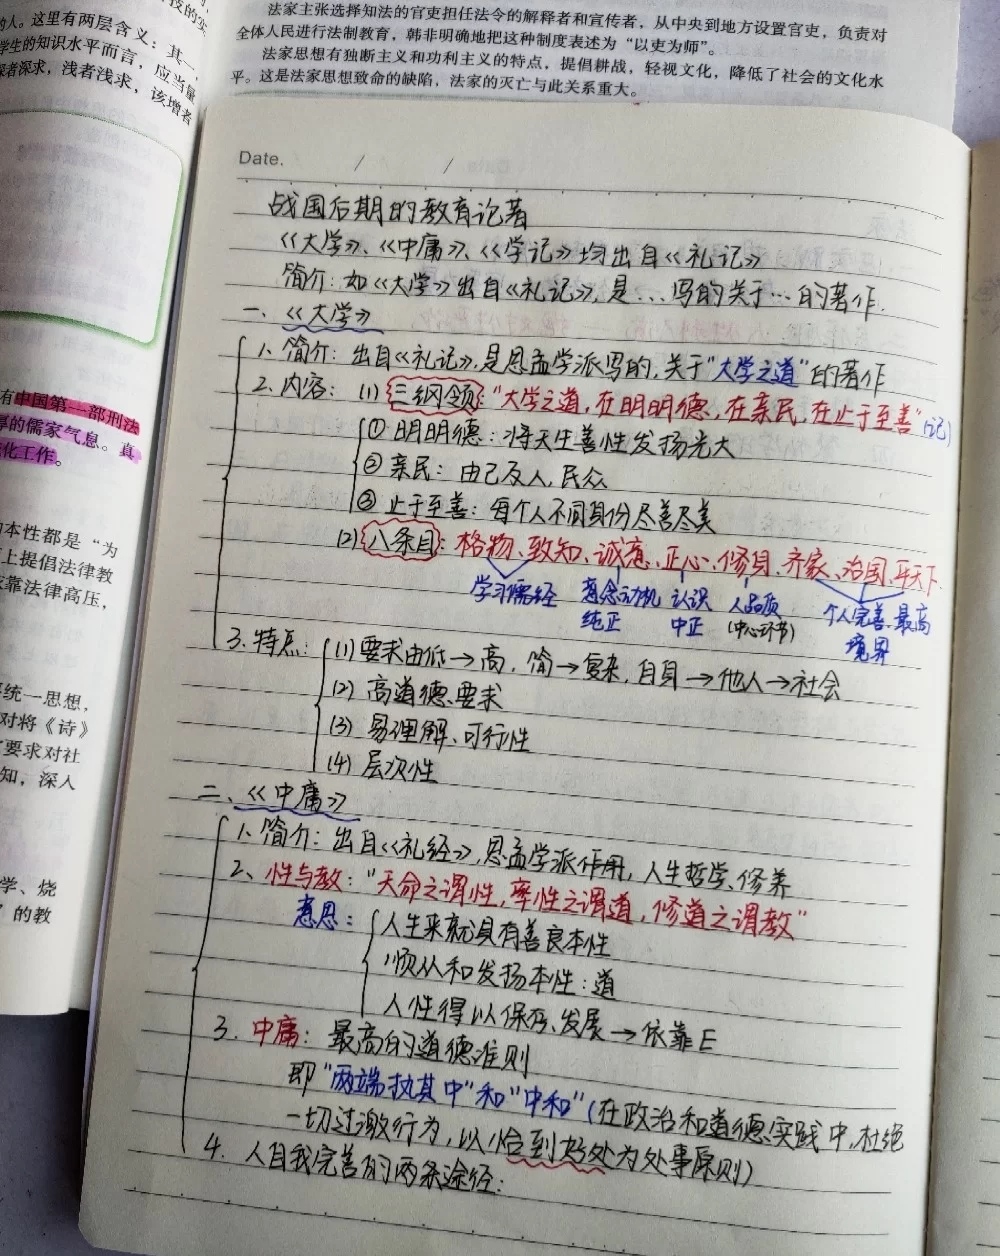 技的实
的人。这里有两层含义：其一，
学生的知识水平而言，应当量
深者深求，浅者浅求，该增者
有中国第一部刑法
厚的儒家气息。真
化工作。
本性都是“为
上提倡法律教
靠法律高压，
统一思想，
对将《诗》
要求对社
知，深入
学、烧
”的教
法家主张选择知法的官吏担任法令的解释者和宣传者，从中央到地方设置官吏，负责对
全体人民进行法制教育，韩非明确地把这种制度表述为“以吏为师”。
法家思想有独断主义和功利主义的特点，提倡耕战，轻视文化，降低了社会的文化水
平。这是法家思想致命的缺陷，法家的灭亡与此关系重大。
Date. / /
战国后期的教育论著
《大学》、《中庸》、《学记》均出自《礼记》
简介：如《大学》出自《礼记》，是…写的关于…的著作.
一、《大学》
1、简介：出自《礼记》，是思孟学派写的，关于“大学之道”的著作
2、内容：(1) 三纲领：“大学之道，在明明德，在亲民，在止于至善”(记)
① 明明德：将天生善性发扬光大
② 亲民：由己及人，民众
③ 止于至善：每个人不同身份尽善尽美
(2) 八条目：格物、致知、诚意、正心、修身、齐家、治国、平天下.
学习儒经 意念动机 认识 人品质 个人完善、最高
纯正 中正 (中心环节) 境界
3、特点：(1) 要求由低→高，简→复杂，自身→他人→社会
(2) 高道德要求
(3) 易理解、可行性
(4) 层次性
二、《中庸》
1、简介：出自《礼经》，思孟学派作用，人生哲学、修养
2、性与教：“天命之谓性，率性之谓道，修道之谓教”
意思：人生来就具有善良本性
顺从和发扬本性：道
人性得以保存、发展→依靠E
3. 中庸：最高的道德准则
即“两端执其中”和“中和”(在政治和道德实践中，杜绝
一切过激行为，以恰到好处为处事原则)
4. 人自我完善的两条途径：